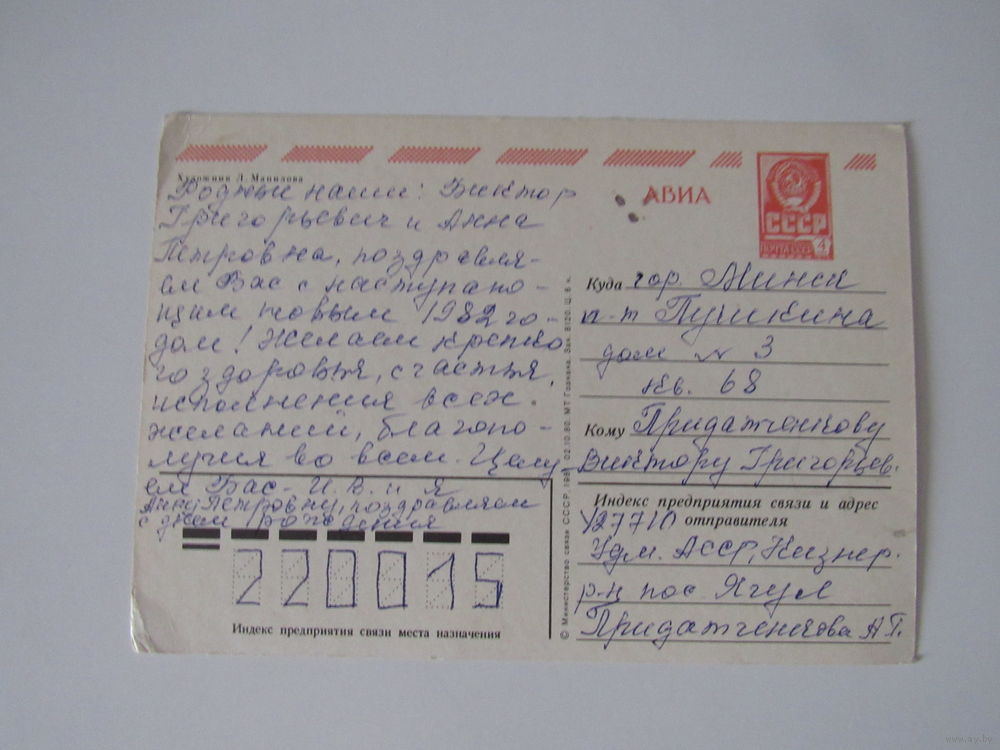 Художник Л. Манилова
Родные наши: Виктор
Григорьевич и Анна
Петровна, поздравля-
ем Вас с наступаю-
щим новым 1982 го-
дом! Желаем крепко
го здоровья, счастья,
исполнения всех
желаний, благопо-
лучия во всем. Целу
ем Вас - И. В. и Я
Анну Петровну, поздравляем
с днем рождения
220015
Индекс предприятия связи места назначения
© Министерство связи СССР. 1981 02.10.80. МТ Гознака. Зак. 8120. Ц. 6 к.
АВИА
СССР
ПОЧТА СССР 4
Куда гор. Минск
п-т Пушкина
дом № 3
кв. 68
Кому Придатченкову
Виктору Григорьев.
Индекс предприятия связи и адрес
427710 отправителя
Удм. АССР, Кизнер.
р-н пос. Ягул
Придатченкова А Т.
www.ay.by